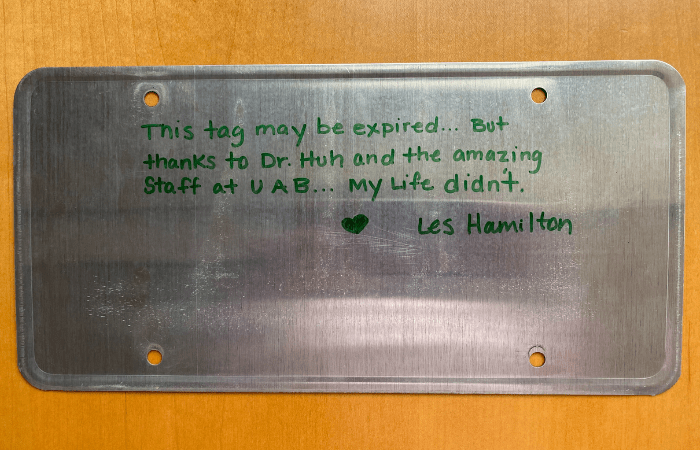 This tag may be expired... But
thanks to Dr. Huh and the amazing
Staff at UAB... My Life didn't.
♥ Les Hamilton